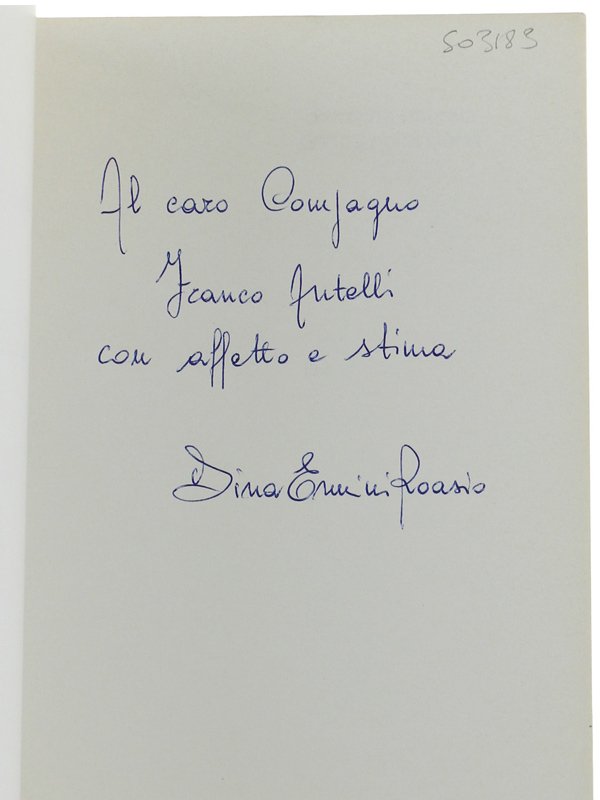 503183
Al caro Compagno
Franco Antelli
con affetto e stima
Dina Ermini Roasio